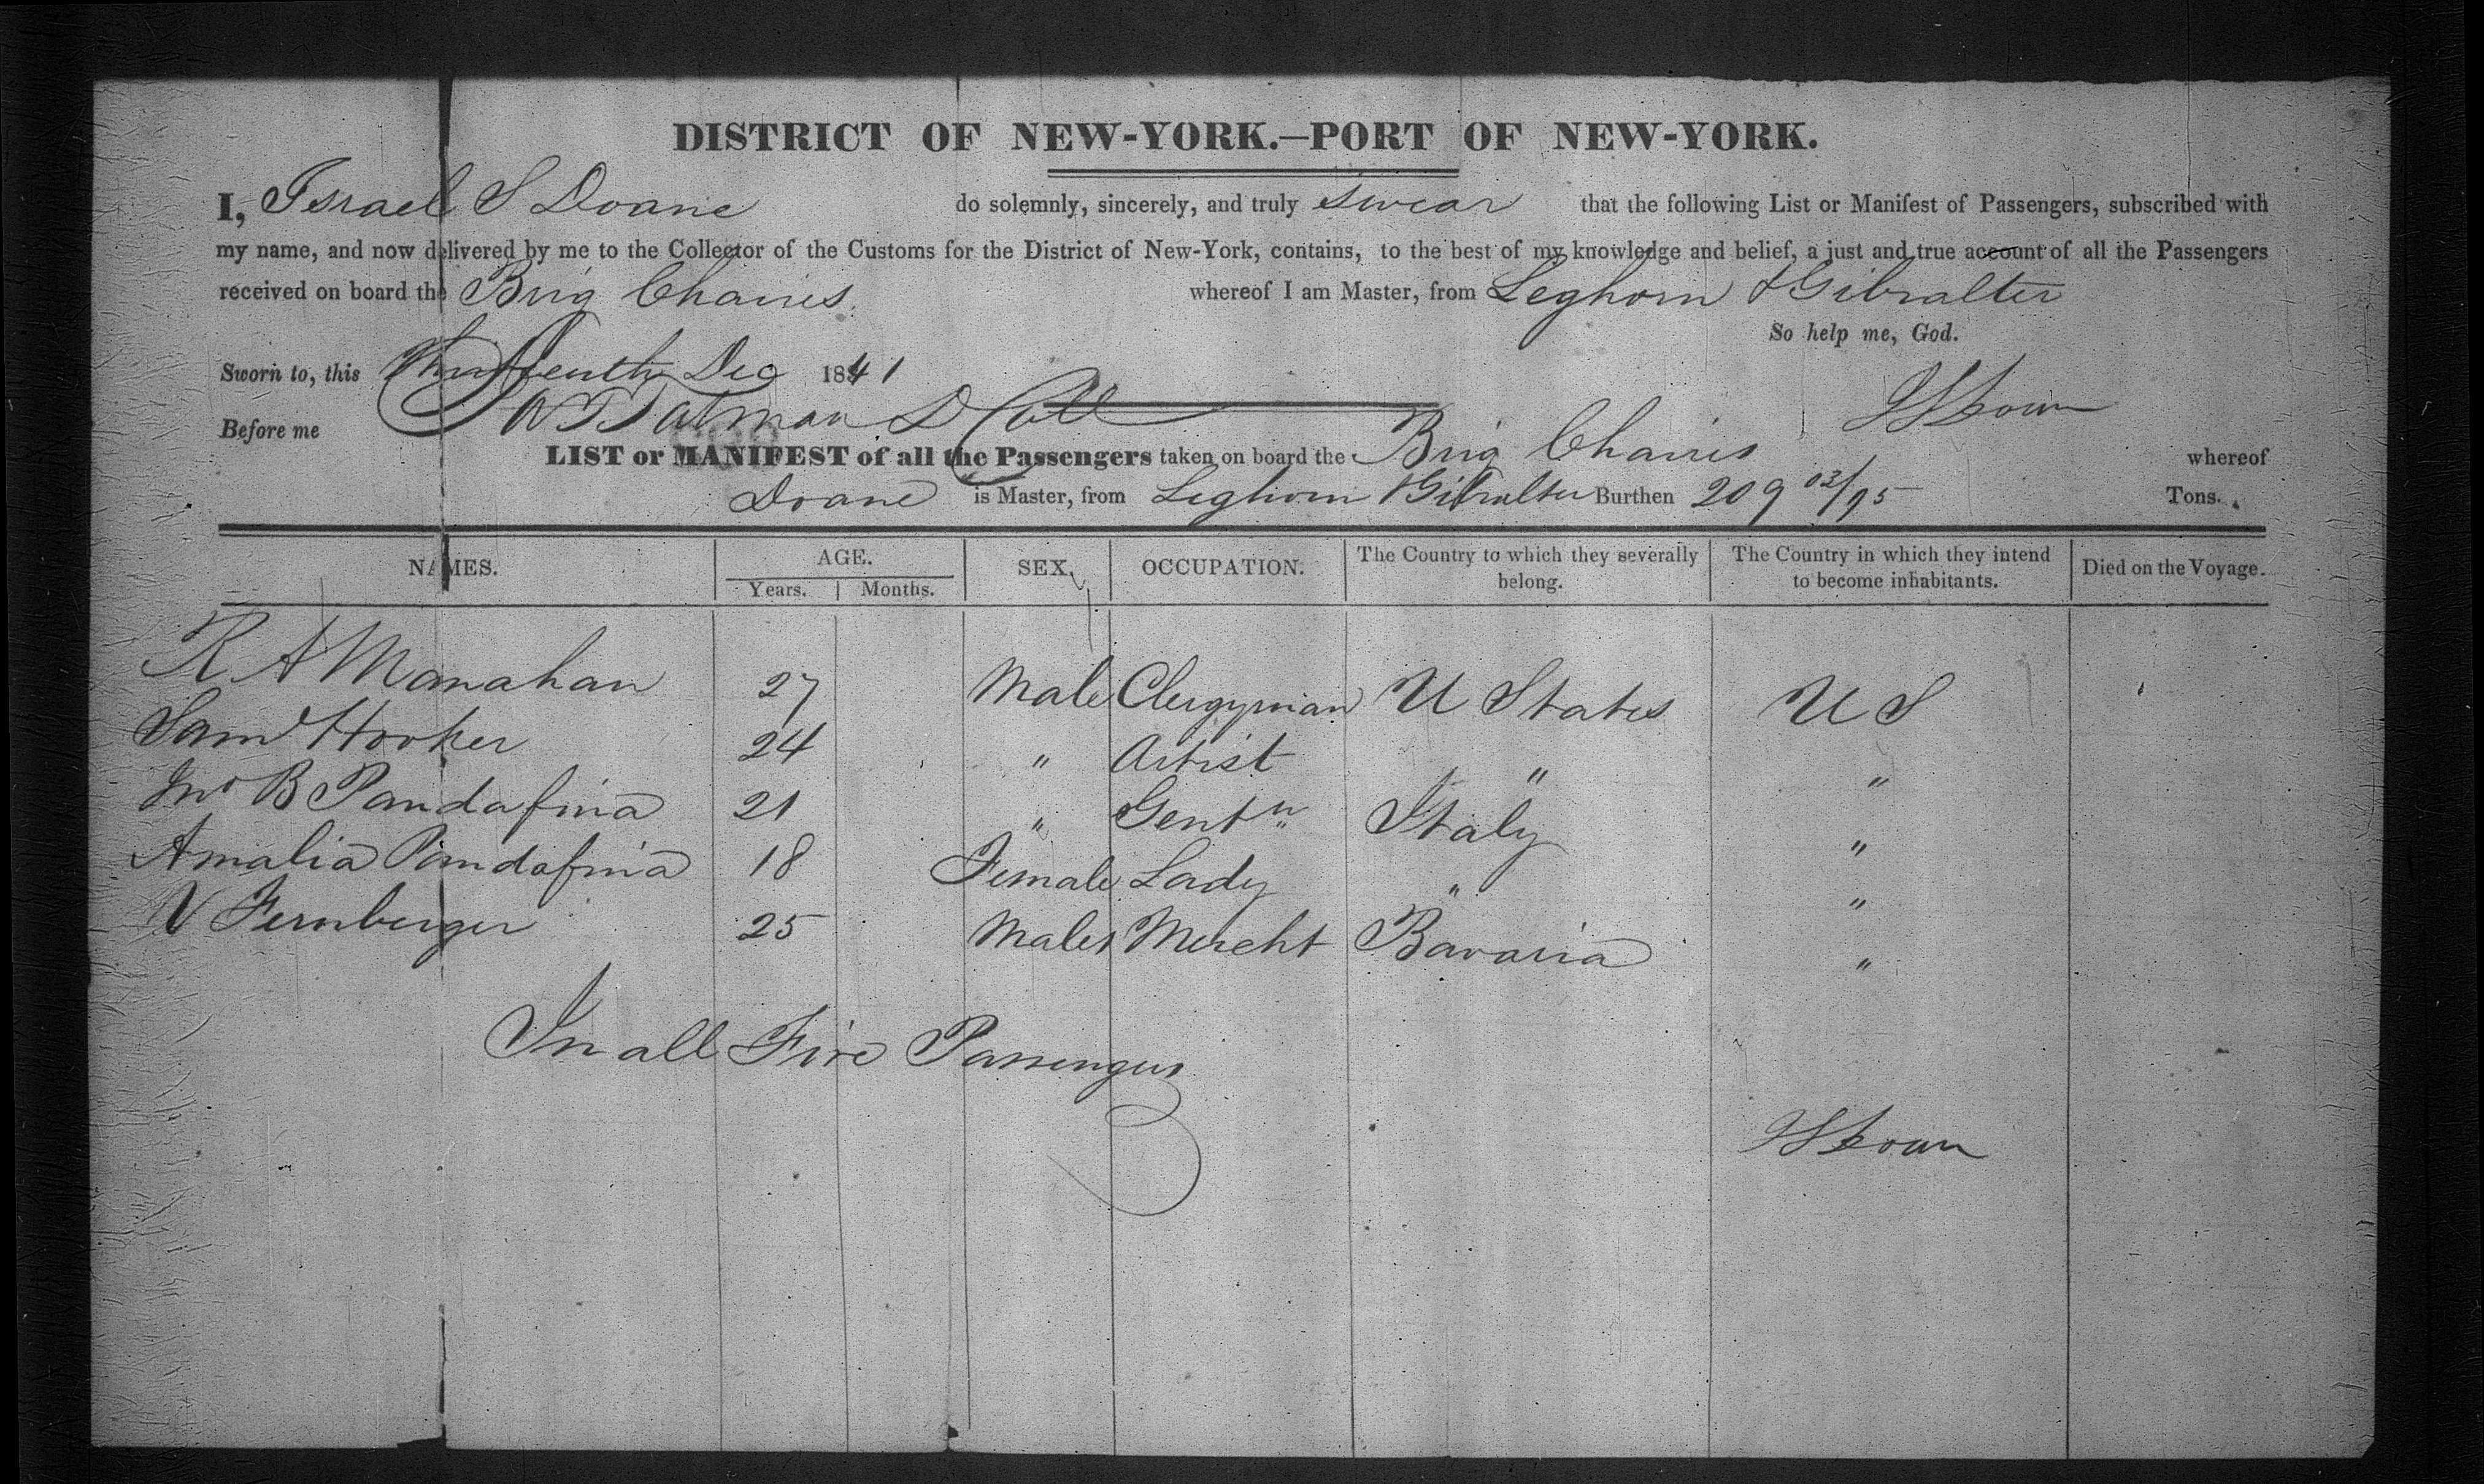 DISTRICT OF NEW-YORK.—PORT OF NEW-YORK.
I, Israel S Doane do solemnly, sincerely, and truly swear that the following List or Manifest of Passengers, subscribed with
my name, and now delivered by me to the Collector of the Customs for the District of New-York, contains, to the best of my knowledge and belief, a just and true account of all the Passengers
received on board the Brig Chaires whereof I am Master, from Leghorn & Gibralter
So help me, God.
Sworn to, this Dec 1841
Before me Talman D Coll
LIST or MANIFEST of all the Passengers taken on board the Brig Chaires whereof
Doane is Master, from Leghorn & Gibralter Burthen 209 03/95 Tons.
NAMES. AGE. SEX. OCCUPATION. The Country to which they severally belong. The Country in which they intend to become inhabitants. Died on the Voyage.
Years. Months.
R A Manahan 27 Male Clergyman U States U S
Saml Hooker 24 " Artist " "
Jno B Pandafina 21 " Gentn Italy "
Amalia Pandafina 18 Female Lady " "
V Fernberger 25 Males Mercht Bavaria "
In all Five Passengers